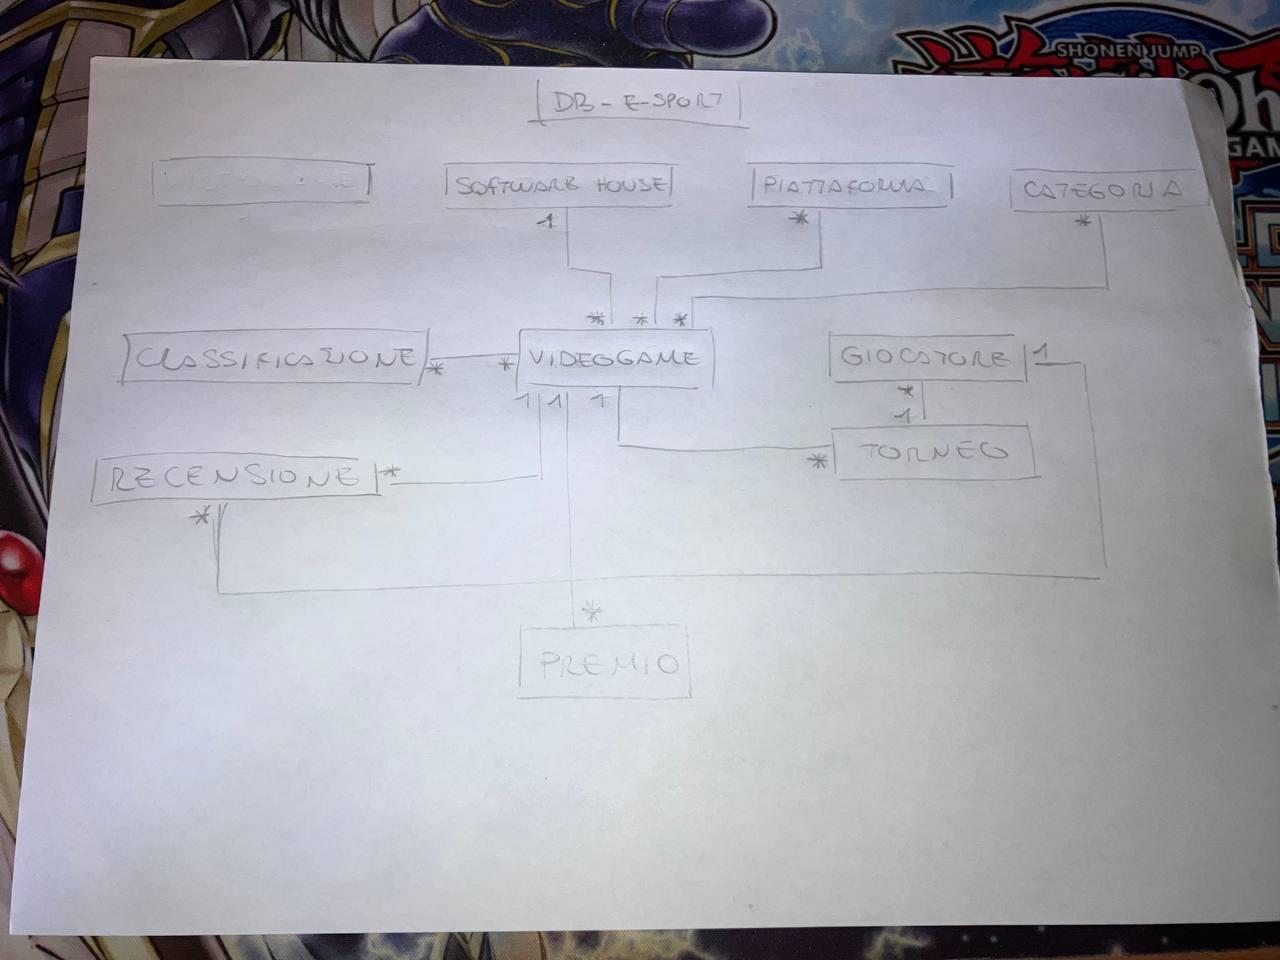 SHONEN JUMP
DB - E-SPORT
SOFTWARE HOUSE
PIATTAFORMA
CATEGORIA
1
*
*
*
*
*
CLASSIFICAZIONE
*
*
VIDEOGAME
GIOCATORE
1
1
1
1
*
1
RECENSIONE
*
*
TORNEO
*
*
PREMIO